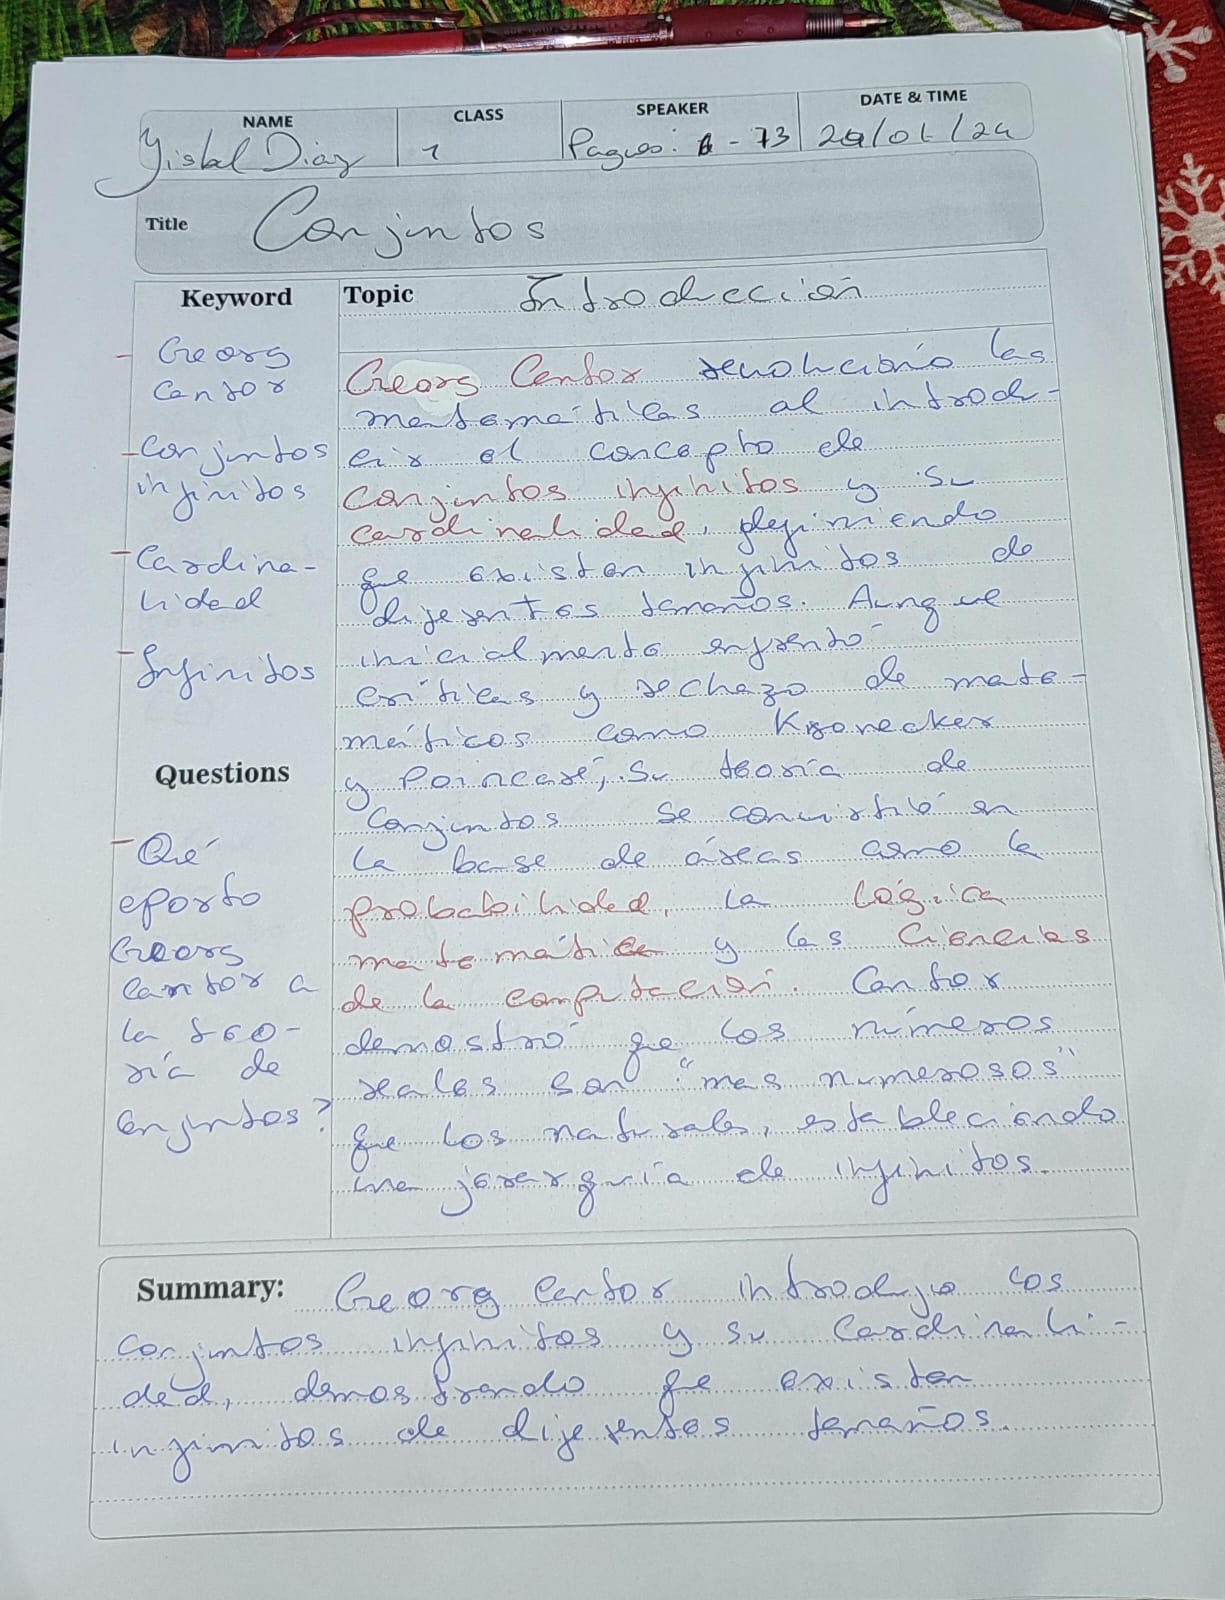 NAME CLASS SPEAKER DATE & TIME
Yisbel Diaz 1 - 73
Title Conjuntos
Keyword
- Georg
Cantor
- Conjuntos
infinitos
- Cardina-
lidad
- Infinitos
Questions
- Qué
aporto
Georg
Cantor a
la teo-
ría de
conjuntos?
Topic Introducción
Georg Cantor revolucionó las
matemáticas al introdu-
cir el concepto de
conjuntos infinitos y su
cardinalidad, definiendo
que existen infinitos de
diferentes tamaños. Aunque
inicialmente enfrentó
críticas y rechazo de mate-
máticos como Kronecker
y Poincaré, su teoría de
conjuntos se convirtió en
la base de áreas como la
probabilidad, la lógica
matemática y las ciencias
de la computación. Cantor
demostró que los números
reales son "mas numerosos"
que los naturales, estableciendo
una jerarquía de infinitos.
Summary: Georg Cantor introdujo los
conjuntos infinitos y su cardinali-
dad, demostrando que existen
infinitos de diferentes tamaños.